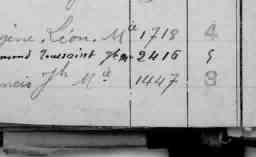 gène Léon. Mie 1718 4
mond Toussaint Jh Mie 2416 5
ncis Jh Mie 1447 3